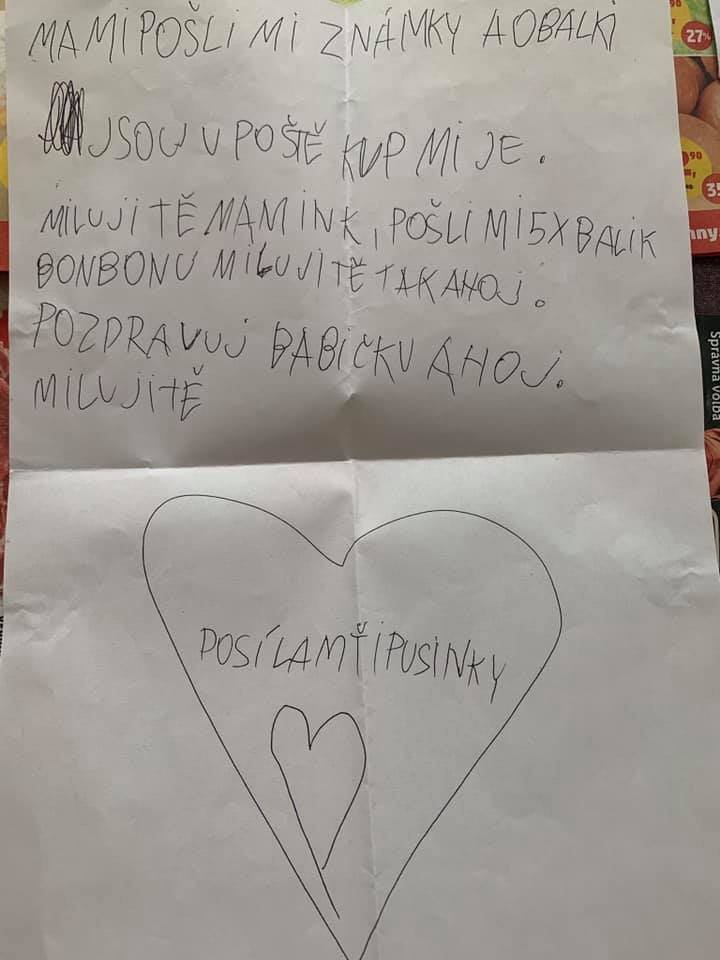 MAMI POŠLI MI ZNÁMKY A OBALKI
JSOU V POŠTĚ KUP MI JE.
MILUJI TĚ MAMINK, POŠLI MI 5X BALIK
BONBONU MILUJI TĚ TAK AHOJ.
POZDRAVUJ BABIČKU AHOJ.
MILUJI TĚ
POSÍLAM ŤI PUSINKY
90
27%
90
35
nny.
Správná volba